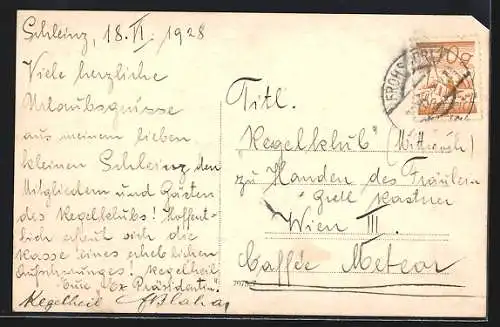 Schleinz, 18. VI. 1928
Viele herzliche
Urlaubsgrüsse
aus meinem lieben
kleinen Schleinz den
Mitgliedern und Gästen
des Kegelklubs! Hoffent-
lich erfreut sich die
Kasse eines erheblichen
Aufschwunges! Kegelheil
Eure "Ex Präsidentin"
Kegelheil
Titl.
"Kegelklub" (Mittwoch)
zu Handen des Fräulein
Gretl Kastner
Wien III.
Caffée Meteor
FROHSDORF